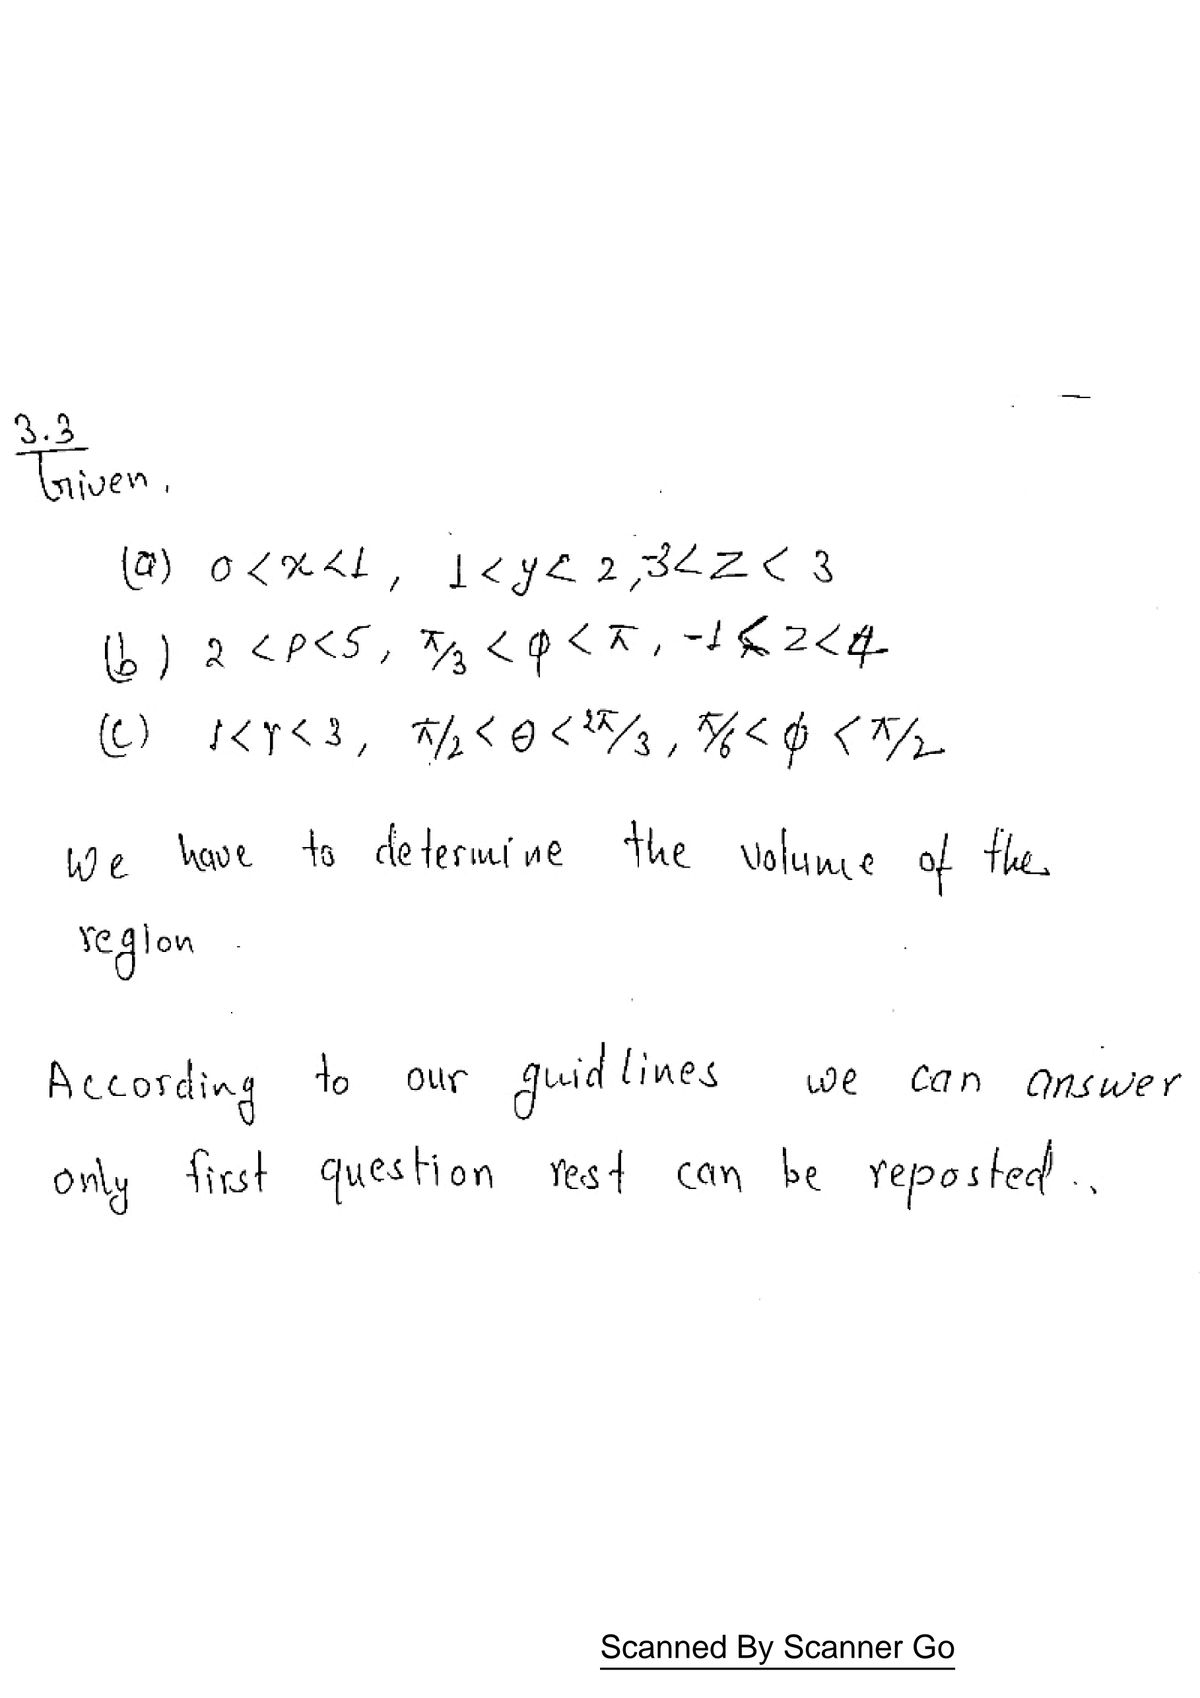 3.3
Given,
(a) 0 < x < 1, 1 < y < 2, -3 < z < 3
(b) 2 < ρ < 5, π/3 < φ < π, -1 < z < 4
(c) 1 < r < 3, π/2 < θ < 2π/3, π/6 < φ < π/2
We have to determine the volume of the
region.
According to our guidlines we can answer
only first question rest can be reposted..
Scanned By Scanner Go